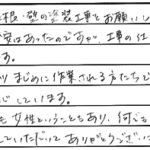 根・壁の塗装工事をお願いし
安はあったのですが、工事の仕
す。
りまじめに作業される方たちで
じています。
も女性ということもあり、何
していただいてありがとうござい